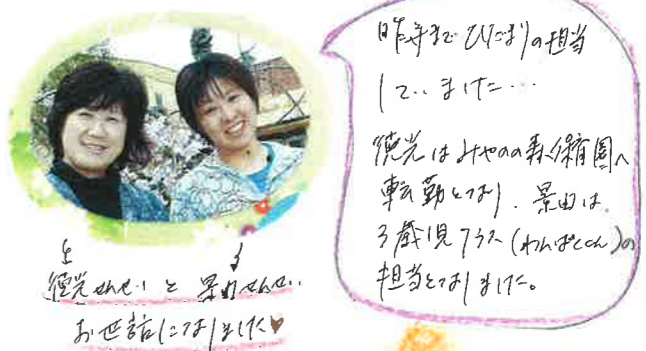 昨年まで ひだまりの担当
していました…
徳光はみやのの森保育園へ
転勤となり、景山は
3歳児クラス(わんぱくくみ)の
担当となりました。
徳光せんせいと 景山せんせい
お世話になりました♥